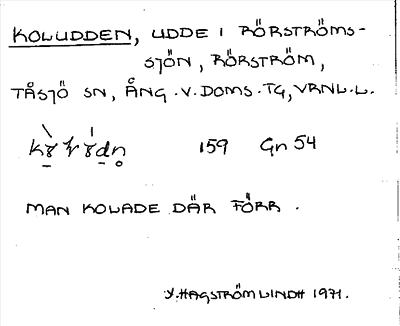 KOLUDDEN, UDDE I RÖRSTRÖMS-
SJÖN, RÖRSTRÖM,
TÅSJÖ SN, ÅNG.V.DOMS.TG, VRNL.L.
159 Gn 54
MAN KOLADE DÄR FÖRR.
Y. HAGSTRÖM LINDH 1971.